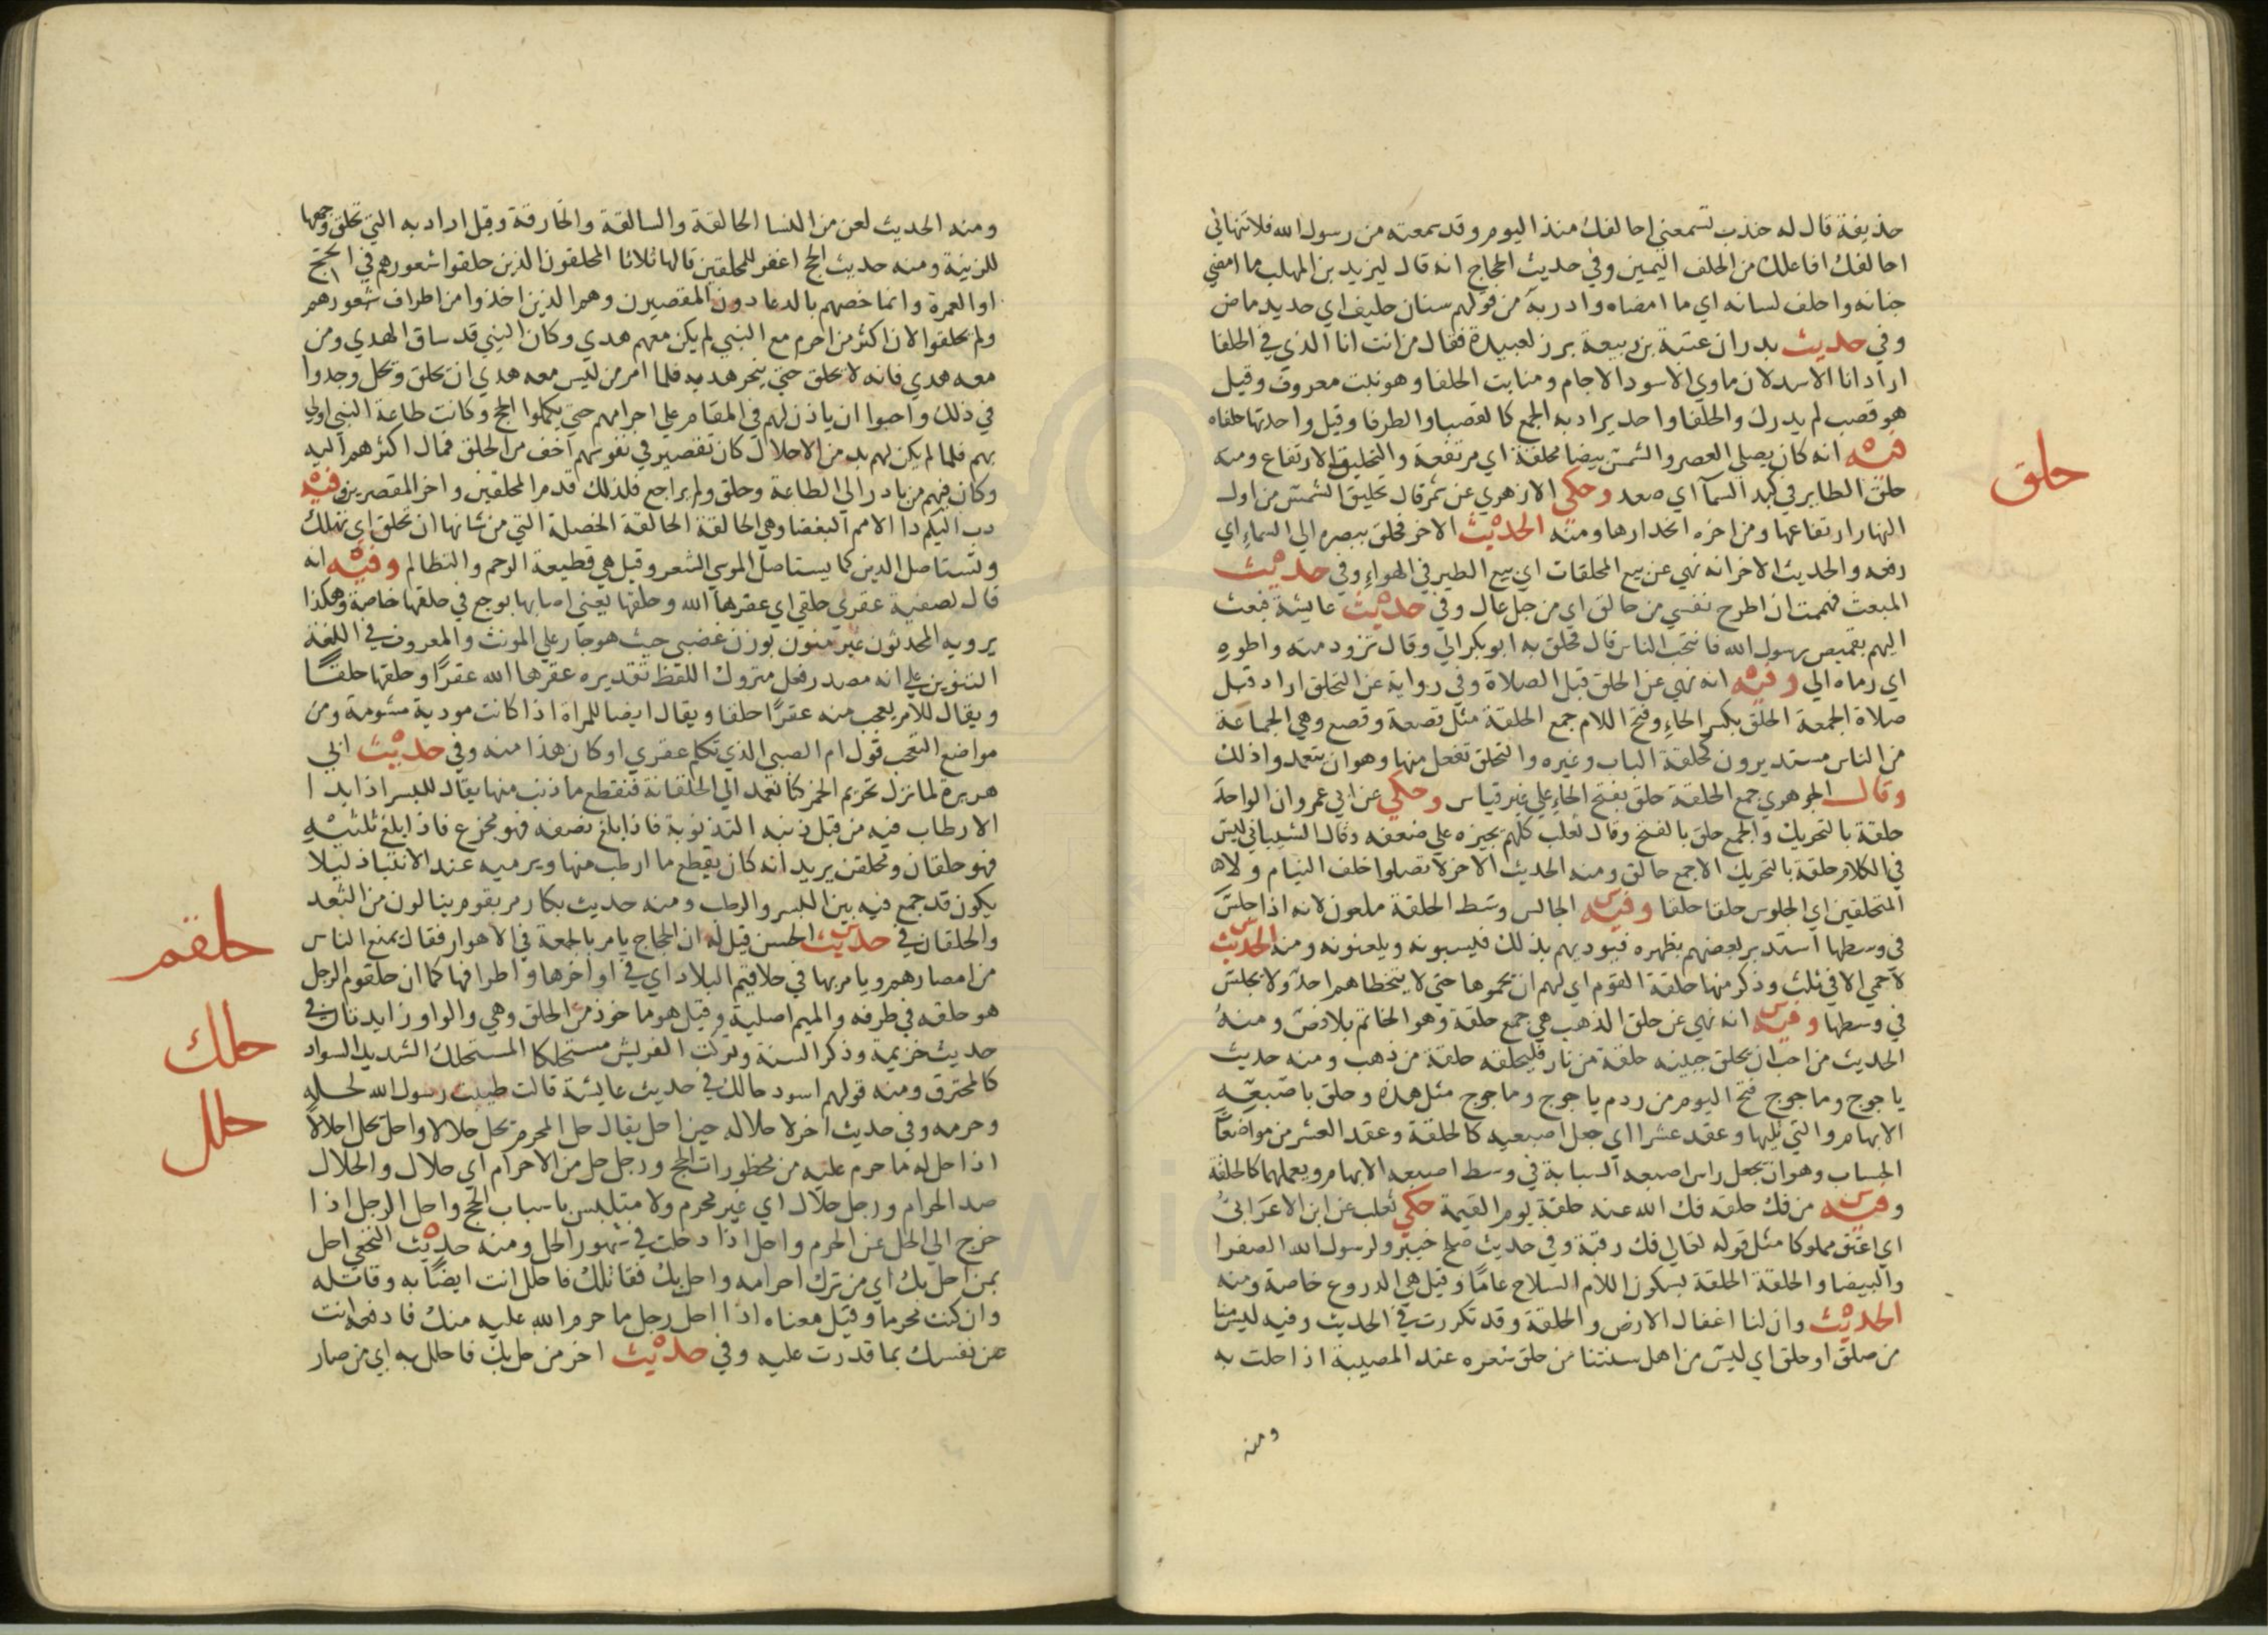 حذيفة قال له جندب تسمعني احالفك منذ اليوم وقد سمعته من رسول الله فلا تنهاني
احالفك افاعلك من الحلف اليمين وفي حديث الحجاج انه قال ليزيد بن المهلب ما امضي
جنانه واحلف لسانه اي ما امضاه واذربه من قولهم سنان حليف اي حديد ماض
وفي حديث بدر ان عتبة بن ربيعة برز لعبيدة فقال من انت انا الذي في الحلفا
اراد انا الاسد لان ماوي الاسود الاجام ومنابت الحلفا وهو نبت معروف وقيل
هو قصب لم يدرك والحلفا واحد يراد به الجمع كالقصبا والطرفا وقيل واحدتها حلفاه
حلق
فيه انه كان يصلي العصر والشمس بيضا محلقة اي مرتفعة والتحليق الارتفاع ومنه
حلق الطاير في كبد السمآ اي صعد وحكي الازهري عن شمر قال تحليق الشمس من اول
النهار ارتفاعها ومن اخره انحدارها ومنه الحديث الاخر فحلق ببصره الي السماءِ اي
رفعه والحديث الاخر انه نهي عن بيع المحلقات اي بيع الطير في الهواءِ وفي حديث
المبعث فهممت ان اطرح نفسي من حالق اي من جبل عال وفي حديث عايشة فبعث
اليهم بقميص رسول الله فانتحب الناس قال فحلق به ابو بكر الي وقال تزود منه واطوه
اي رماه الي وفيه انه نهي عن الحلق قبل الصلاة وفي رواية عن التحلق اراد قبل
صلاة الجمعة الحلق بكسر الحاءِ وفتح اللام جمع الحلقة مثل قصعة وقصع وهي الجماعة
من الناس مستديرون كحلقة الباب وغيره والتحلق تفعل منها وهو ان يتعمدوا ذلك
وقال الجوهري جمع الحلقة حلق بفتح الحاءِ علي غير قياس وحكي عن ابي عمرو ان الواحد
حلقة بالتحريك والجمع حلق بالفتح وقال ثعلب كلهم يجيزه علي ضعفه وقال الشيباني ليس
في الكلام حلقة بالتحريك الا جمع حالق ومنه الحديث الاخر لا تصلوا خلف النيام ولا
المتحلقين اي الجلوس حلقا حلقا وفيه الجالس وسط الحلقة ملعون لانه اذا جلس
في وسطها استدبر بعضهم بظهره فيوذيهم بذلك فيسبونه ويلعنونه ومنه الحديث
لا حمي الا في ثلث وذكر منها حلقة القوم اي لهم ان يحموها حتي لا يتخطاهم احد ولا يجلس
في وسطها وفيه انه نهي عن حلق الذهب هي جمع حلقة وهو الخاتم بلا فص ومنه
الحديث من احب ان يحلق جبينه حلقة من نار فليحلقه حلقة من ذهب ومنه حديث
ياجوج وماجوج فتح اليوم من ردم ياجوج وماجوج مثل هذه وحلق باصبعيه
الابهام والتي تليها وعقد عشرا اي جعل اصبعيه كالحلقة وعقد العشر من مواضعات
الحساب وهو ان يجعل راس اصبعه السبابة في وسط اصبعه الابهام ويعملهما كالحلقة
وفيه من فك حلقه فك الله عنه حلقة يوم القيمة حكي ثعلب عن ابن الاعرابي
اي اعتق مملوكا مثل قوله تعالي فك رقبة وفي حديث صلح خيبر ولرسول الله الصفرا
والبيضا والحلقة الحلقة بسكون اللام السلاح عاما وقيل هي الدروع خاصة ومنه
الحديث وان لنا اغفال الارض والحلقة وقد تكررت في الحديث وفيه ليس منا
من صلق او حلق اي ليس من اهل سنتنا من حلق شعره عند المصيبة اذا حلت به
ومنه
ومنه الحديث لعن من النسا الحالقة والسالقة والخارقة وقيل اراد به التي تحلق وجهها
للزينة ومنه حديث الحج اغفر للمحلقين قالها ثلاثا المحلقون الذين حلقوا شعورهم في الحج
او العمرة وانما خصهم بالدعا دون المقصرين وهم الذين اخذوا من اطراف شعورهم
ولم يحلقوا لان اكثر من احرم مع النبي لم يكن معهم هدي وكان النبي قد ساق الهدي ومن
معه هدي فانه لا يحلق حتي ينحر هديه فلما امر من ليس معه هدي ان يحلق ويحل وجدوا
في ذلك واحبوا ان ياذن لهم في المقام علي احرامهم حتي يكملوا الحج وكانت طاعة النبي اولي
بهم فلما لم يكن لهم بد من الاحلال كان تقصير في نفوسهم اخف من الحلق فمال اكثرهم اليه
وكان فيهم من بادر الي الطاعة وحلق ولم يراجع فلذلك قدم المحلقين واخر المقصرين وفيه
دب اليكم دا الامم البغضا وهي الحالقة الحالقة الخصلة التي من شانها ان تحلق اي تهلك
وتستاصل الدين كما يستاصل الموسي الشعر وقيل هي قطيعة الرحم والتظالم وفيه انه
قال لصفية عقري حلقي اي عقرها الله وحلقها يعني اصابها بوجع في حلقها خاصة وهكذا
يرويه المحدثون غير منون بوزن غضبي حيث هو جار علي المونث والمعروف في اللغة
التنوين علي انه مصدر فعل متروك اللفظ تقديره عقرها الله عقرًا وحلقها حلقًا
ويقال للامر يعجب منه عقرًا حلقا ويقال ايضا للمراة اذا كانت موذية مشومة ومن
مواضع التعجب قول ام الصبي الذي تكلم عقري او كان هذا منه وفي حديث ابي
هريرة لما نزل تحريم الخمر كنا نعمد الي الحلقانة فنقطع ما ذنب منها يقال للبسر اذا بدا
الارطاب فيه من قبل ذنبه التذنوبة فاذا بلغ نصفه فهو مجزع فاذا بلغ ثلثيه
فهو حلقان ومحلقن يريد انه كان يقطع ما ارطب منها ويرميه عند الانتباذ ليلا
يكون قد جمع فيه بين البسر والرطب ومنه حديث بكار مر بقوم ينالون من الثعد
حلقم
والحلقان في حديث الحسن قيل له ان الحجاج يامر بالجمعة في الاهواز فقال يمنع الناس
من امصارهم ويامر بها في حلاقيم البلاد اي في اواخرها واطرافها كما ان حلقوم الرجل
هو حلقه في طرفه والميم اصلية وقيل هو ماخوذ من الحلق وهي والواو زايدتان في
حلك
حديث خزيمة وذكر السنة وتركت الفريش مستحلكا المستحلك الشديد السواد
كالمحترق ومنه قولهم اسود حالك في حديث عايشة قالت طيبت رسول الله لحله
حلل
وحرمه وفي حديث اخر لاحلاله حين احل يقال حل المحرم يحل حلالا واحل يحل احلالا
اذا حل له ما حرم عليه من محظورات الحج ورجل حل من الاحرام اي حلال والحلال
ضد الحرام ورجل حلال اي غير محرم ولا متلبس باسباب الحج واحل الرجل اذا
خرج الي الحل عن الحرم واحل اذا دخلت في شهور الحل ومنه حديث النخعي احل
بمن احل بك اي من ترك احرامه واحل بك فقاتلك فاحلل انت ايضًا به وقاتله
وان كنت محرما وقيل معناه اذا احل رجل ما حرم الله عليه منك فادفعه انت
عن نفسك بما قدرت عليه وفي حديث اخر من حل بك فاحلل به اي من صار